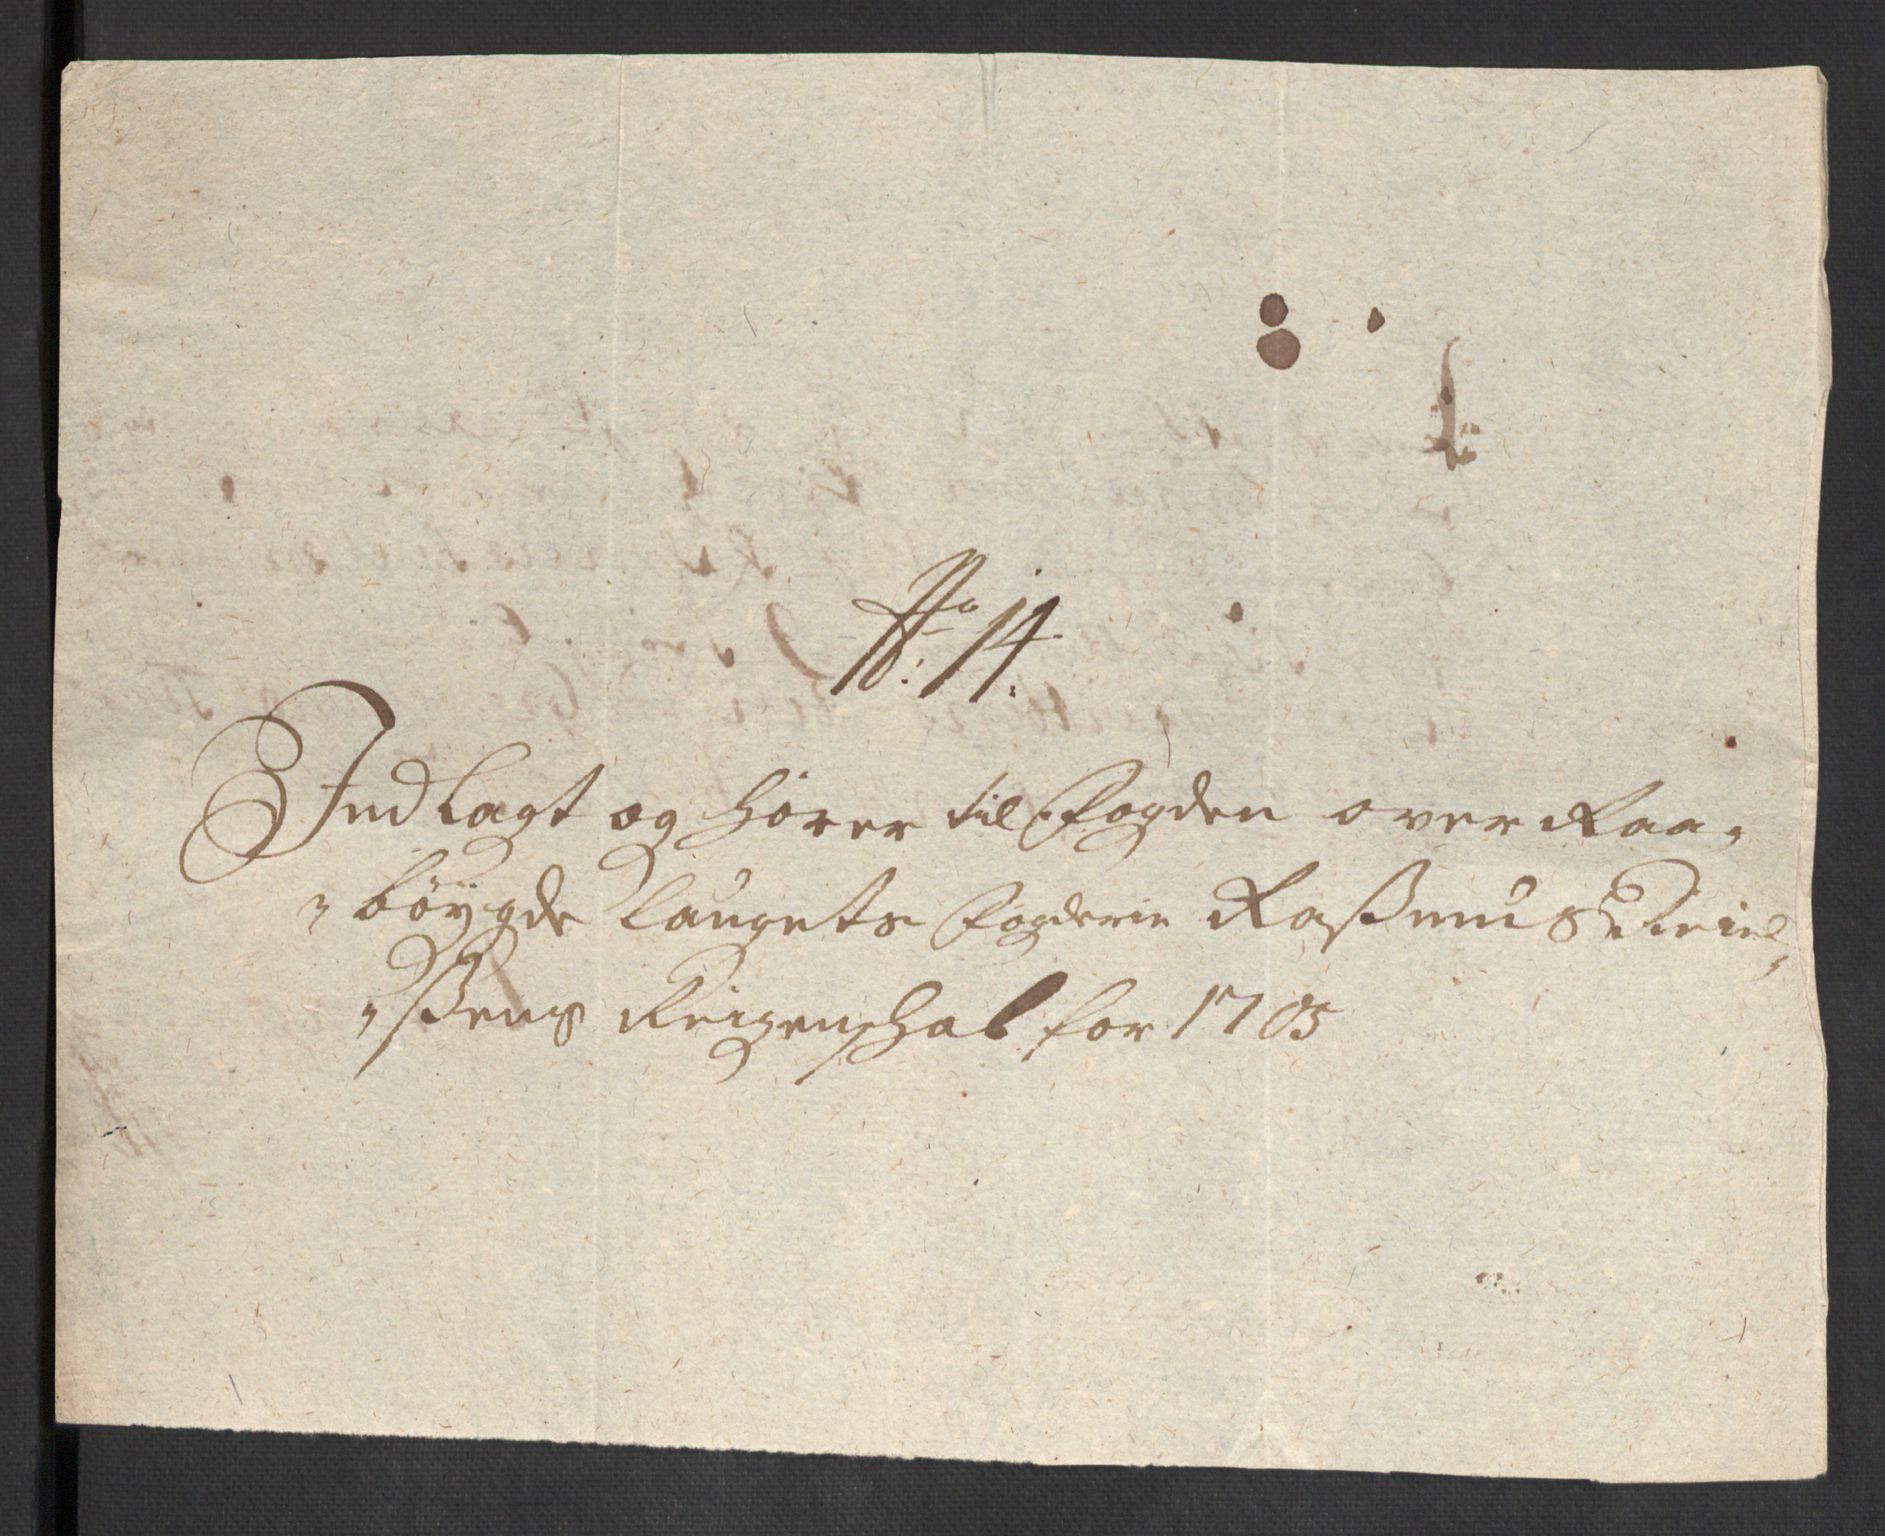 No: 14.
Indlagt og hører til Fogden over Raa-
bøygde Laugets Fogderie Rasmus
ßens Reigenschab for 1705